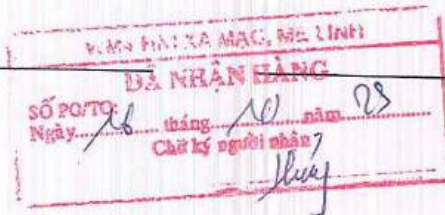 XÃ MAG, MÊ LINH
ĐÃ NHẬN HÀNG
SỐ PO/TO:
Ngày 16 tháng 10 năm 23
Chữ ký người nhận